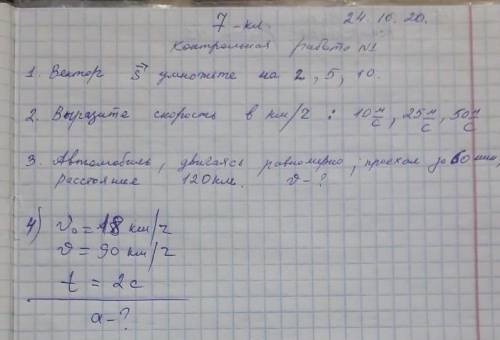 7 - кл. 24.10.20.
Контрольная работа №1
1. Вектор s⃗ умножете на 2, 5, 10.
2. Выразите скорость в км/ч : 10 м/с, 25 м/с, 50 м/с
3. Автомобиль, двигаясь равномерно, проехал за 60 мин,
расстояние 120 км. v - ?
4) v₀ = 18 км/ч
v = 90 км/ч
t = 2 с
a - ?